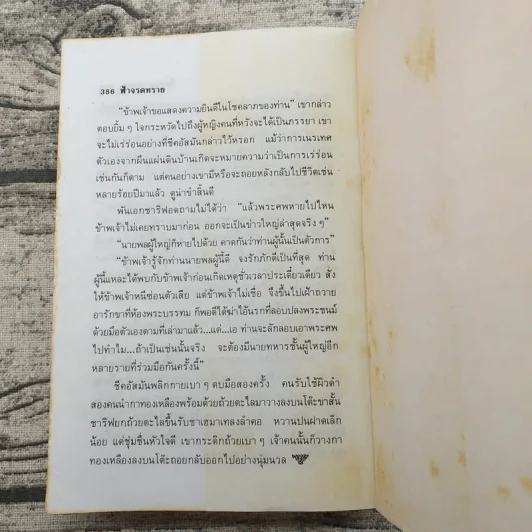 386 ฟ้าจรดทราย
“ข้าพเจ้าขอแสดงความยินดีในโชคลาภของท่าน” เขากล่าว
ตอบยิ้ม ๆ ใจกระหวัดไปถึงผู้หญิงคนที่หวังจะได้เป็นภรรยา เขา
จะไม่เร่ร่อนอย่างที่ชีคอัสมันกล่าวไว้หรอก แม้ว่าการเนรเทศ
ตัวเองจากผืนแผ่นดินบ้านเกิดจะหมายความว่าเป็นการเร่ร่อน
เช่นกันก็ตาม แต่คนอย่างเขามีหรือจะถอยหลังกลับไปชีวิตเช่น
หลายร้อยปีมาแล้ว ดูน่าขำสิ้นดี
พันเอกชารีฟอดถามไม่ได้ว่า “แล้วพระศพหายไปไหน
ข้าพเจ้าไม่เคยทราบมาก่อน ออกจะเป็นข่าวใหญ่ล่าสุดจริง ๆ”
“นายพลผู้ใหญ่ก็หายไปด้วย คาดกันว่าท่านผู้นั้นเป็นตัวการ”
“ข้าพเจ้ารู้จักท่านนายพลผู้นี้ดี จงรักภักดีเป็นที่สุด ท่าน
ผู้นี้แหละได้พบกับข้าพเจ้าก่อนเกิดเหตุชั่วเวลาประเดี๋ยวเดียว สั่ง
ให้ข้าพเจ้าหนีซ่อนตัวเสีย แต่ข้าพเจ้าไม่เชื่อ จึงขึ้นไปเฝ้าถวาย
อารักขาที่ห้องพระบรรทม ก็พอดีได้ฆ่าไอ้นรกที่ลอบปลงพระชนม์
ด้วยมือตัวเองตามที่เล่ามาแล้ว...แต่...เอ ท่านจะลักลอบเอาพระศพ
ไปทำไม...ถ้าเป็นเช่นนั้นจริง จะต้องมีนายทหารชั้นผู้ใหญ่อีก
หลายรายที่ร่วมมือกันครั้งนี้”
ชีคอัสมันพลิกกายเบา ๆ ตบมือสองครั้ง คนรับใช้ผิวดำ
สองคนนำกาทองเหลืองพร้อมด้วยถ้วยตะไลมาวางลงบนโต๊ะขาสั้น
ชารีฟยกถ้วยตะไลขึ้นรับชาเฮมาเทลงลำคอ หวานปนฝาดเล็ก
น้อย แต่ชุ่มชื่นหัวใจดี เขากระดิกถ้วยเบา ๆ เจ้าคนนั้นก็วางกา
ทองเหลืองลงบนโต๊ะถอยกลับออกไปอย่างนุ่มนวล